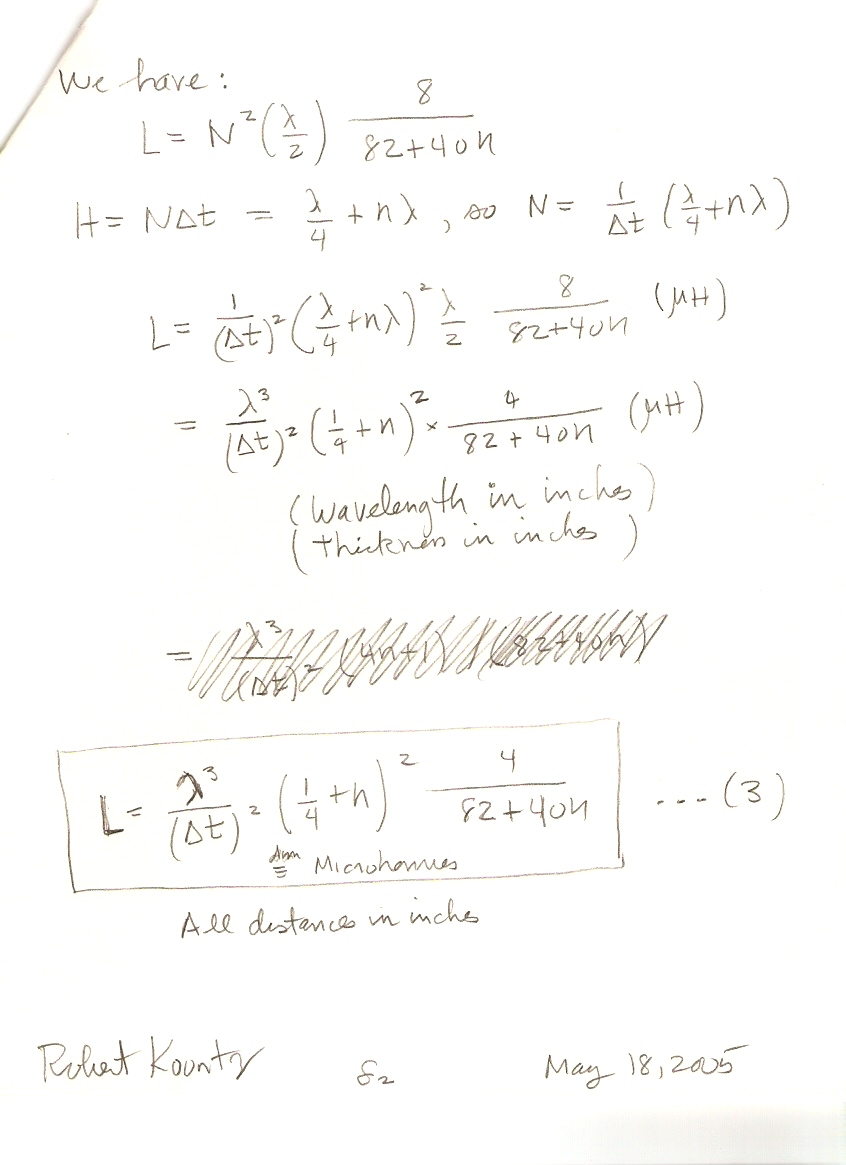 We have:
L = N²(λ/2) 8/(82+40n)
H = NΔt = λ/4 + nλ, so N = 1/Δt (λ/4+nλ)
L = 1/(Δt)² (λ/4+nλ)² λ/2 8/(82+40n) (μH)
= λ³/(Δt)² (1/4+n)² × 4/(82+40n) (μH)
(Wavelength in inches)
(thickness in inches)
= λ³/(Δt)² (4n+1) (82+40n)
L = λ³/(Δt)² (1/4+n)² 4/(82+40n) --- (3)
≡ Microhenries
All distances in inches
Robert Koontz 82 May 18, 2005